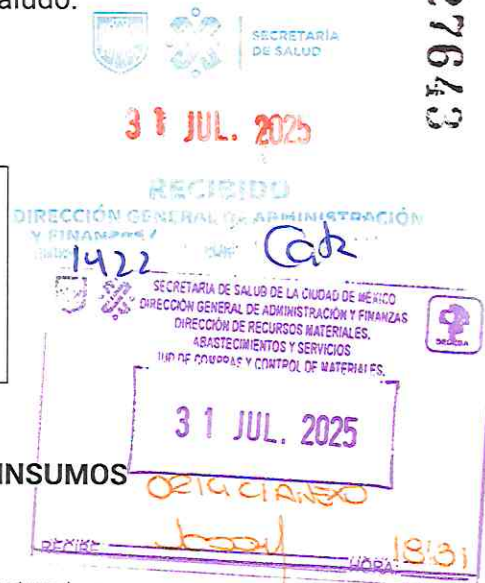 aludo.
SECRETARÍA
DE SALUD
27643
31 JUL. 2025
RECIBIDO
DIRECCIÓN GENERAL DE ADMINISTRACIÓN
Y FINANZAS
1422
SECRETARÍA DE SALUD DE LA CIUDAD DE MÉXICO
DIRECCIÓN GENERAL DE ADMINISTRACIÓN Y FINANZAS
DIRECCIÓN DE RECURSOS MATERIALES,
ABASTECIMIENTOS Y SERVICIOS
JUD DE COMPRAS Y CONTROL DE MATERIALES.
31 JUL. 2025
INSUMOS
RECIBE
HORA:
18:31